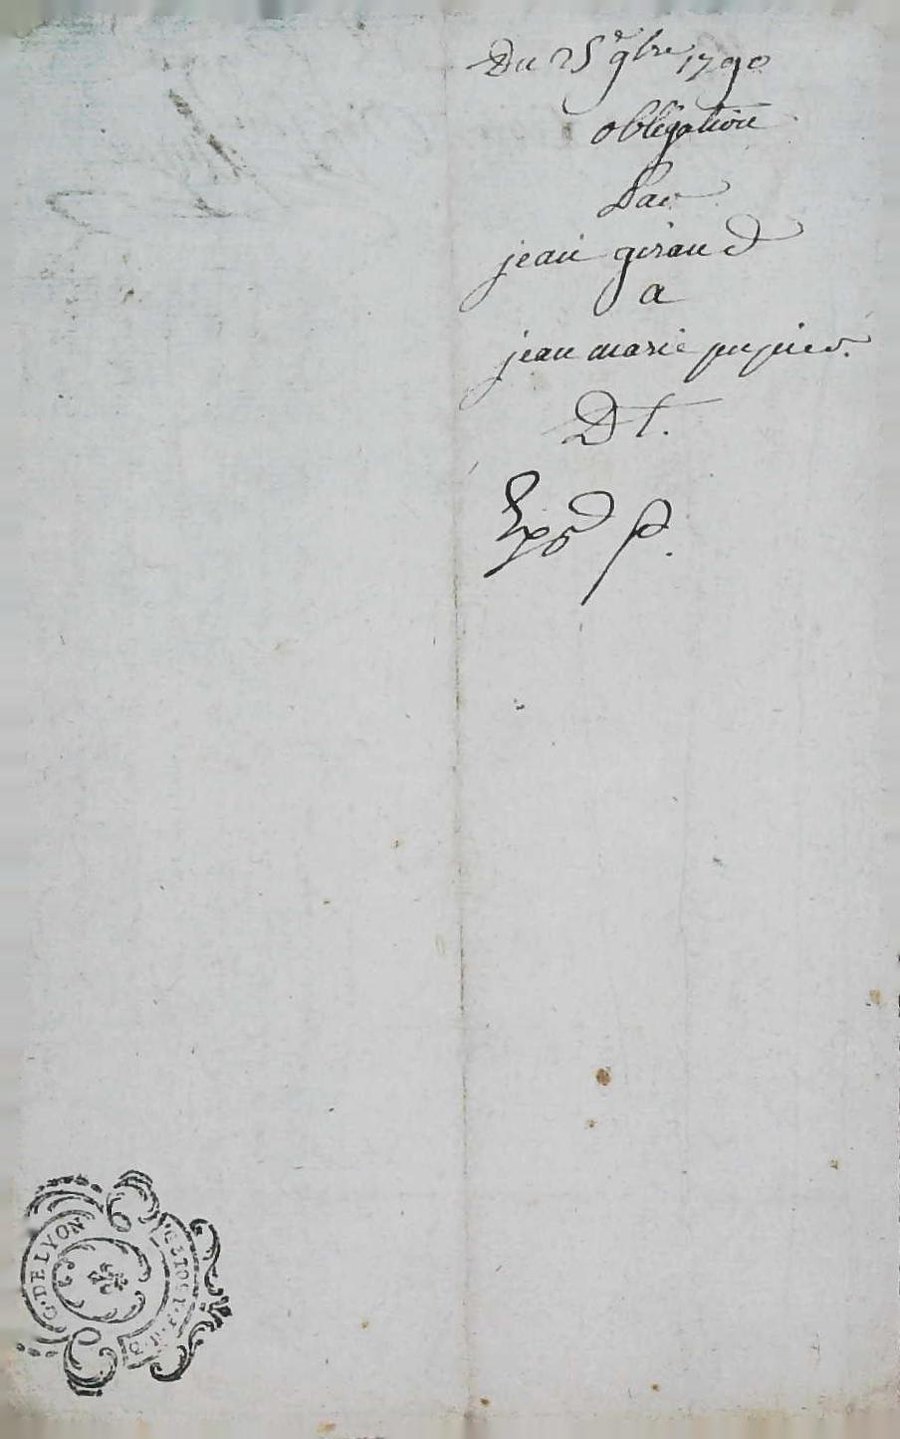 Du 25 9bre 1790
obligation
Par
jean giraud
a
jean marie pupier.
Dt.
Expd P.
G. DE LYON